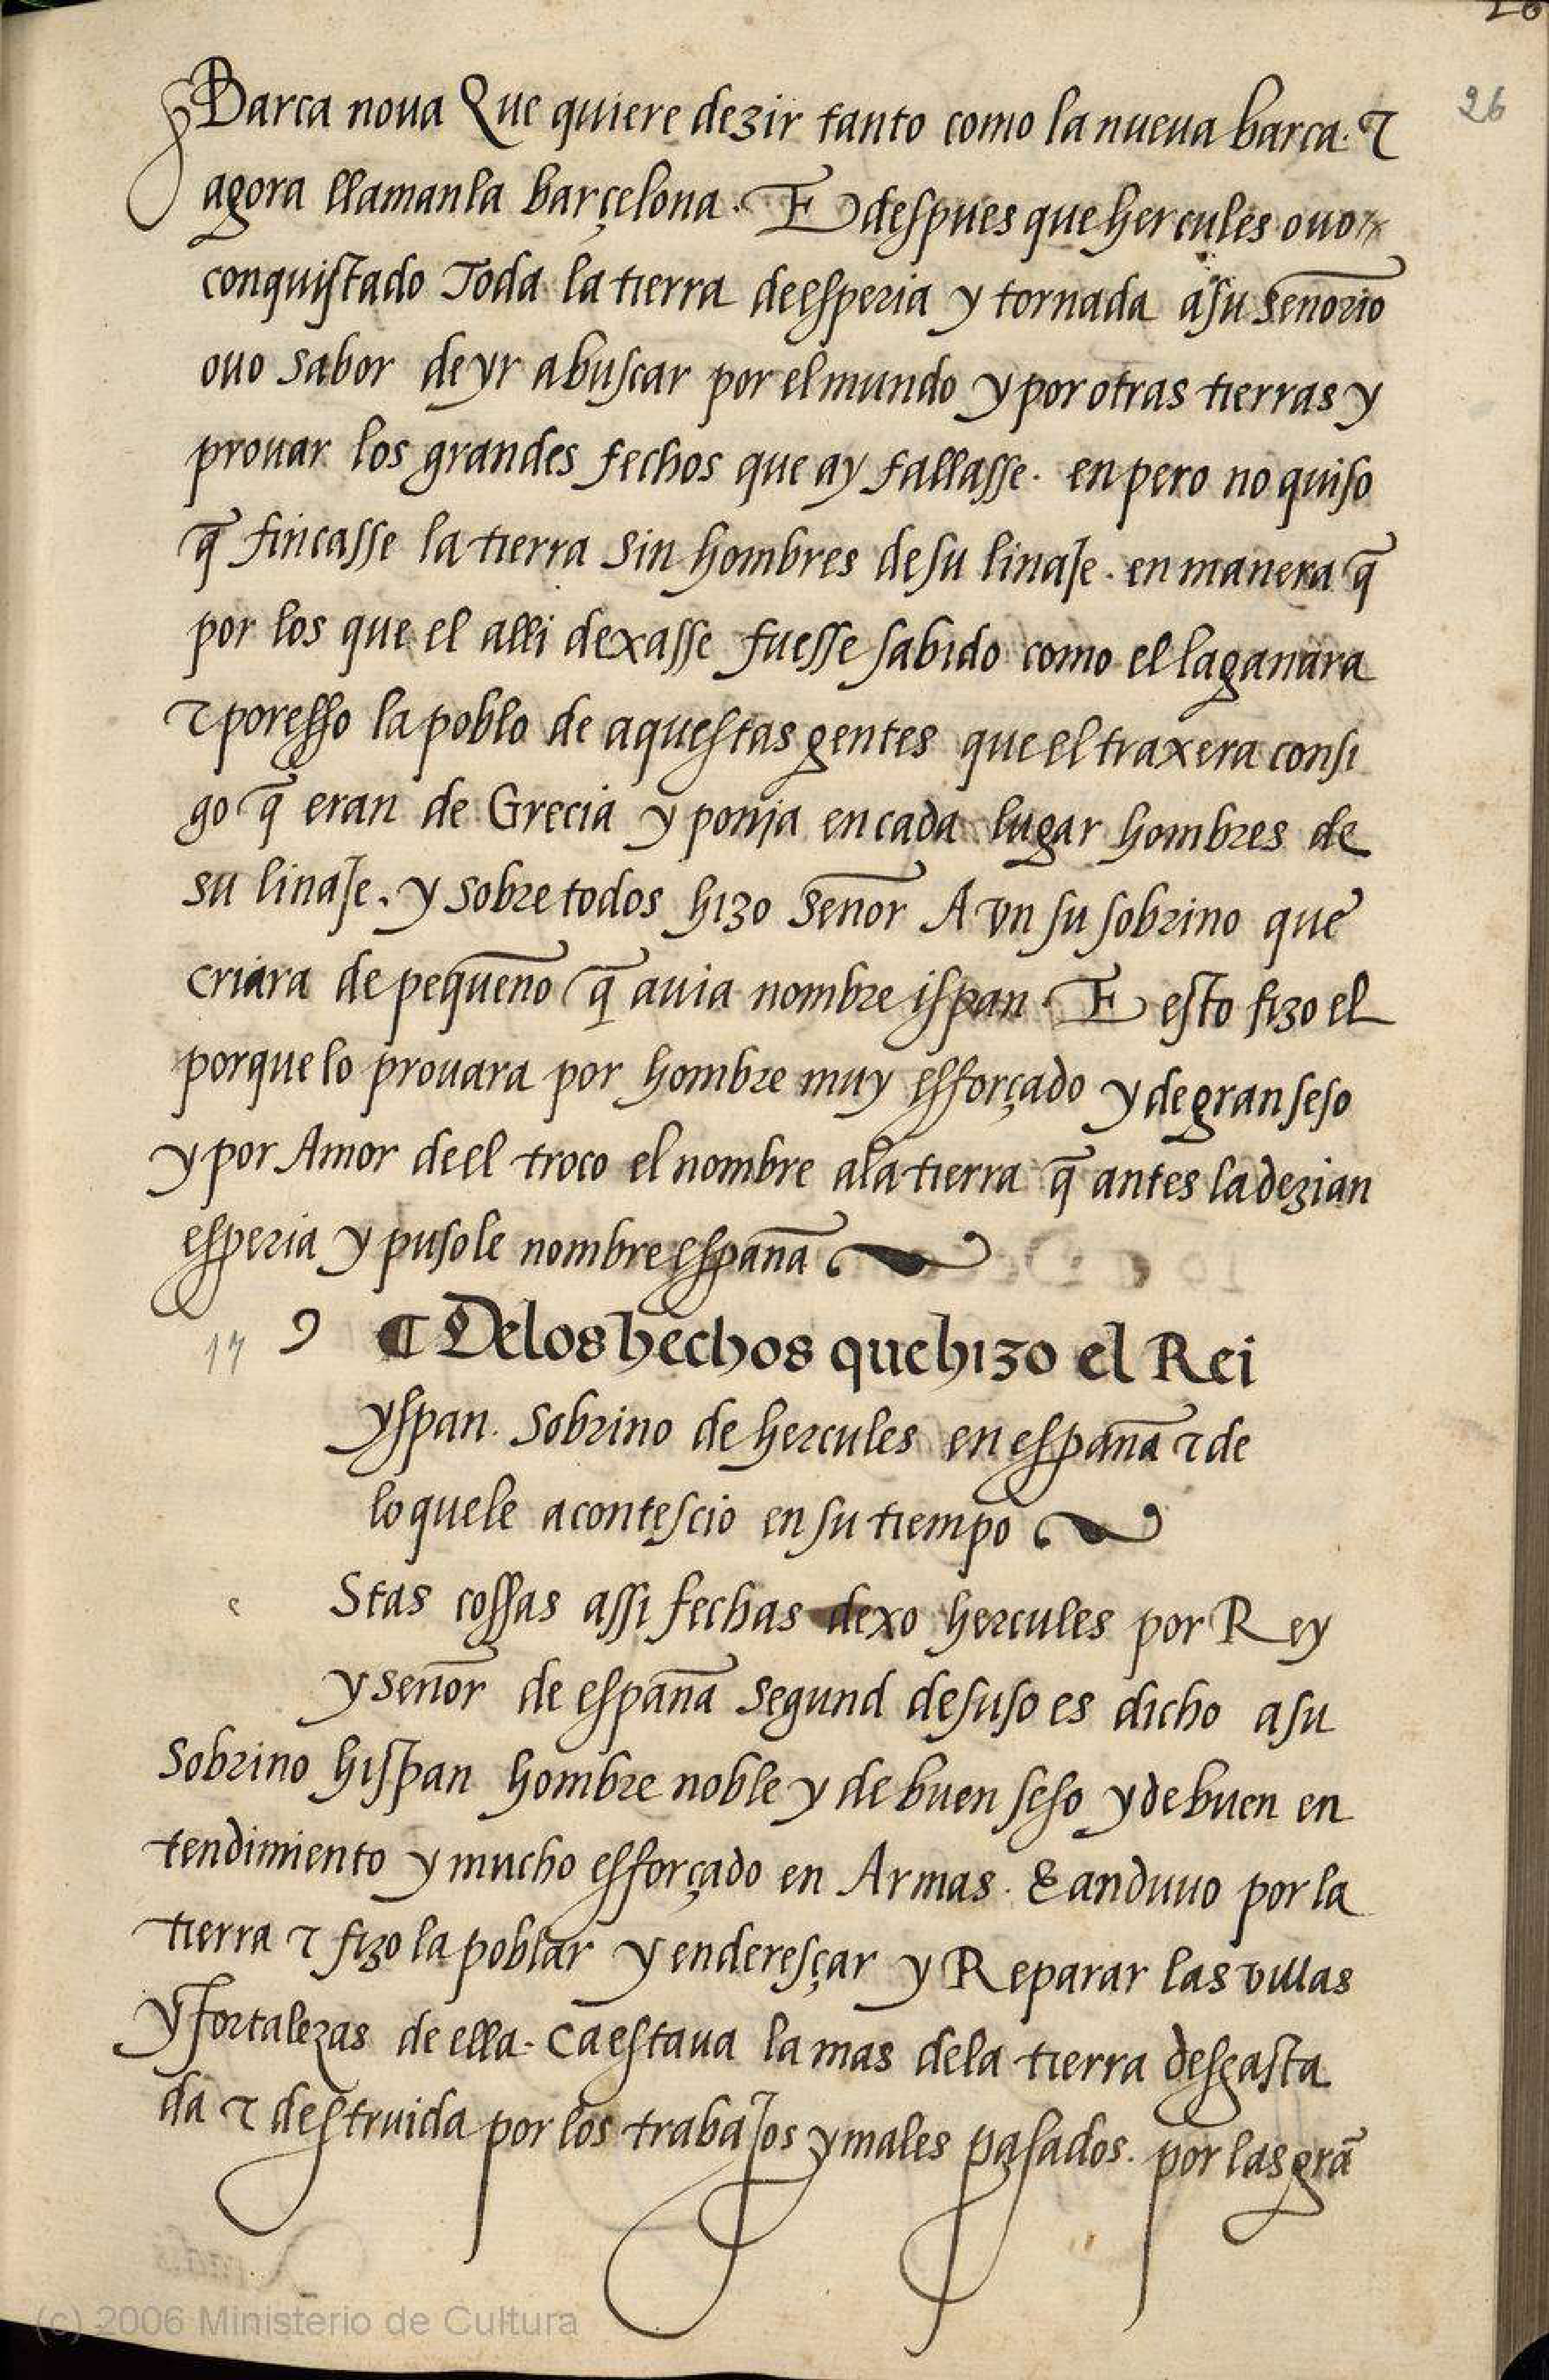 26
26
Barca noua Que quiere dezir tanto como la nueua barca. τ
agora llamanla barçelona. E despues que hercules ouo
conquistado Toda la tierra de esperia y tornada a su señorio
ouo sabor de yr a buscar por el mundo y por otras tierras y
prouar los grandes fechos que ay fallasse. enpero no quiso
q̃ fincasse la tierra sin hombres de su linaje. en manera q̃
por los que el alli dexasse fuesse sabido como el la ganara
τ por esso la poblo de aquestas gentes que el traxera consi
go q̃ eran de Grecia y ponja en cada lugar hombres de
su linaje. y sobre todos hizo señor A vn su sobrino que
criara de pequeño q̃ auia nombre ispan. E esto fizo el
porque lo prouara por hombre muy esforçado y de gran seso
y por Amor de el troco el nombre a la tierra q̃ antes la dezian
esperia y pusole nombre españa
17 9 ¶ De los hechos que hizo el Rei
yspan. sobrino de hercules en españa τ de
lo que le acontescio en su tiempo
e Stas cossas assi fechas dexo hercules por Rey
y señor de españa segund desuso es dicho a su
sobrino hispan hombre noble y de buen seso y de buen en
tendimiento y mucho esforçado en Armas. & anduuo por la
tierra τ fizo la poblar y enderesçar y Reparar las villas
y fortalezas de ella. Ca estaua la mas de la tierra desgasta
da τ destruida por los trabajos y males pasados. por las grã
(c) 2006 Ministerio de Cultura